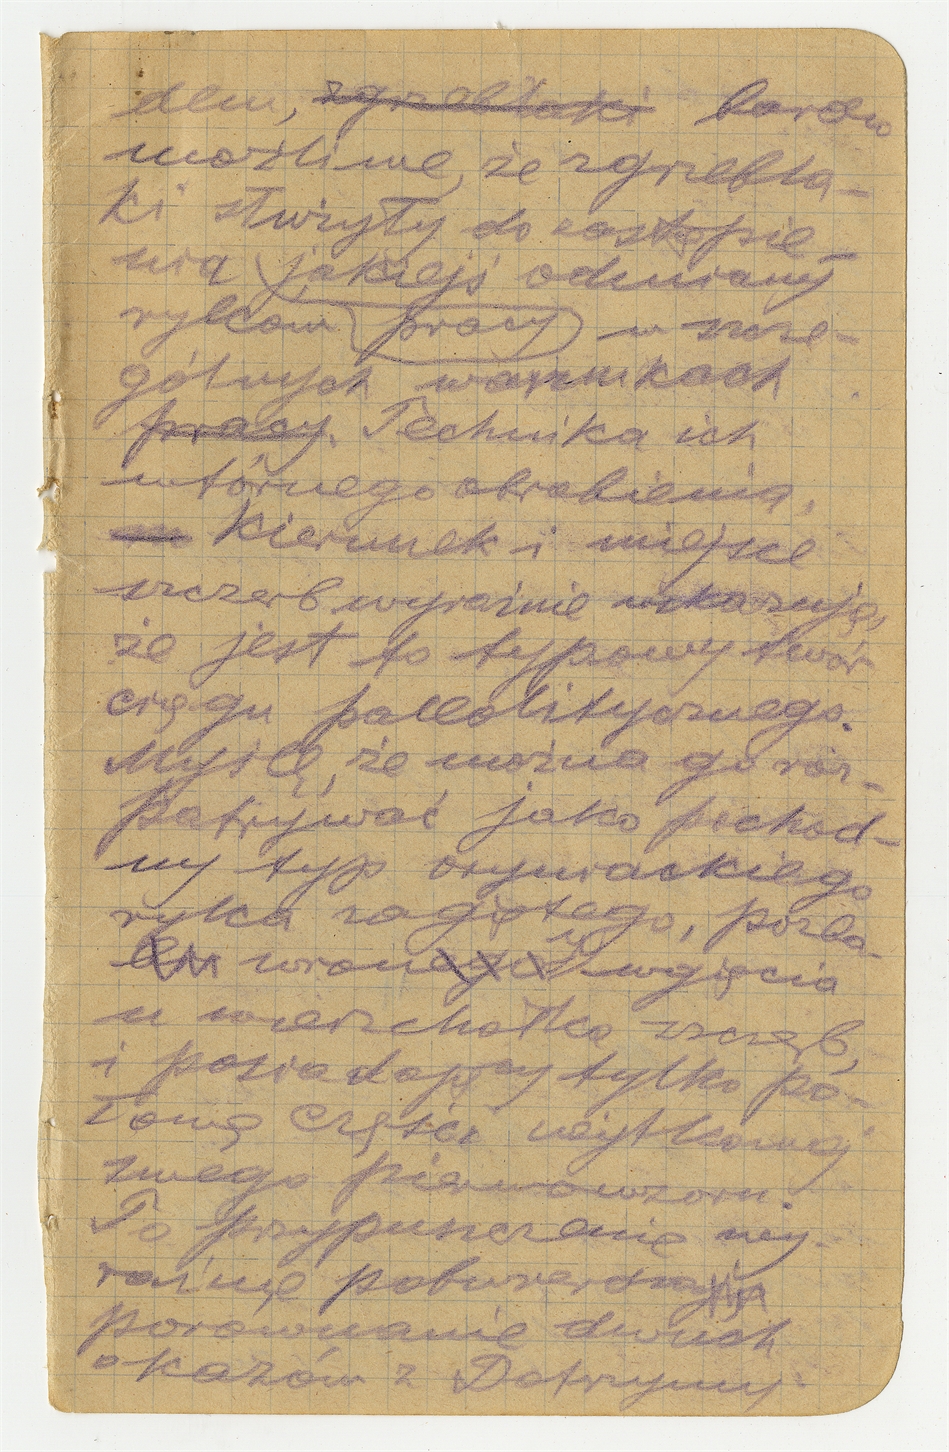 dem, zgrzebłaki bardzo
możliwe, że zgrzebła-
ki służyły do zastąpie-
nia jakiejś odmiany
rylców pracy w szcze-
gólnych warunkach
pracy. Technika ich
wtórnego obrobienia,
Kierunek i miejsce
szczerb wyraźnie wskazuje,
że jest to typowy twór
cięgu paleolitycznego.
Myślę, że można go roz-
patrywać jako pochod-
ny typ oryniackiego
rylca zagiętego, pozba-
wgięcia
u wierzchołka szczerb,
i posiadający tylko po-
łowę części użytkowej
swego pierwowzoru.
To przypuszczenie wy-
raźnie potwierdza
porównanie dwuch
okazów z Dotrzymy